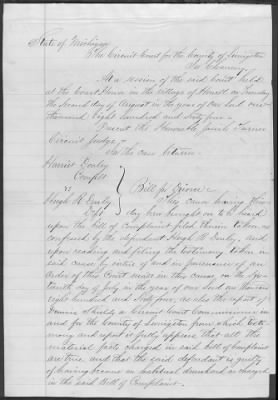 State of Michigan
The Circuit Court for the County of Livingston
In Chancery
At a session of the said Court held
at the Court House in the village of Howell on Tuesday
the second day of August in the year of our Lord one
thousand Eight hundred and sixty four
Present the Honorable Josiah Turner
Circuit Judge
In the case between
Harriet Donley
Complt
vs
Hugh H Donley
Deft
Bill for Divorce
This cause having this
day been brought on to be heard
upon the bill of Complaint filed therein taken as
confessed by the defendant Hugh H Donley, and
upon reading and filing the testimony taken in
said cause by virtue of and in pursuance of an
Order of this Court made in this cause, on the
day of July in the year of our Lord one thousand
eight hundred and sixty four, as also the report of
Dennis Shields a Circuit Court Commissioner in
and for the County of Livingston from which testi-
mony and report it fully appears that all the
material facts charged in said bill of Complaint
are true and that the said defendant is guilty
of having become an habitual drunkard as charged
in the said Bill of Complaint.